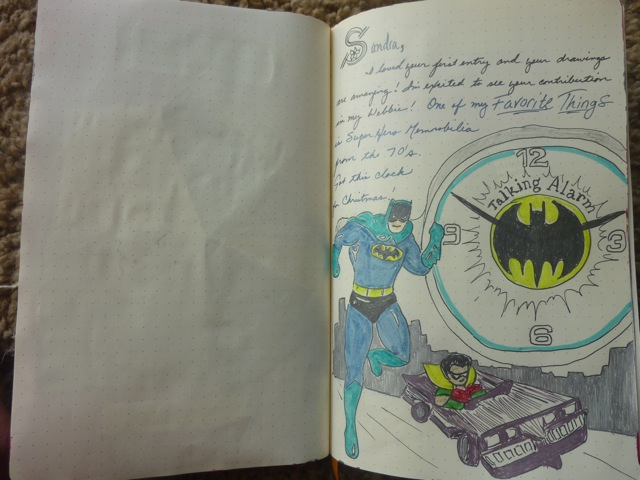 Sandra,
I loved your first entry and your drawings
are amazing! I'm excited to see your contribution
in my Webbie! One of my Favorite Things
is Super Hero Memrobilia
from the 70's.
Got this clock
for Christmas!
12
Talking Alarm
9
3
6